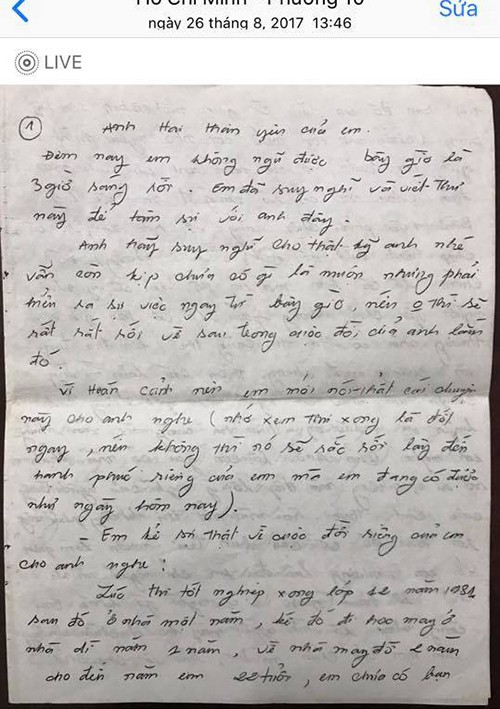 Hồ Chí Minh - Phường 10
ngày 26 tháng 8, 2017 13:46
Sửa
LIVE
1
Anh Hai thân yêu của em.
Đêm nay em không ngủ được bây giờ là
3 giờ sáng rồi. Em đã suy nghĩ và viết thư
này để tâm sự với anh đây.
Anh hãy suy nghĩ cho thật kỹ anh nhé
vẫn còn kịp chưa có gì là muộn nhưng phải
ra sự việc ngay từ bây giờ, nếu o thì sẽ
rất rắc rối về sau trong cuộc đời của anh lắm
đó.
Vì hoàn cảnh nên em mới nói thật cái chuyện
này cho anh nghe (nhớ xem thư xong là đốt
ngay, nếu không thì nó sẽ rắc rối lây đến
hạnh phúc riêng của em mà em đang có được
như ngày hôm nay).
- Em kể sự thật về cuộc đời riêng của em
cho anh nghe:
Lúc thi tốt nghiệp xong lớp 12 năm 1981
sau đó ở nhà một năm, kế đó đi học may ở
nhà dì năm 1 năm, về nhà may đồ 2 năm
cho đến năm em 22 tuổi, em chưa có bạn